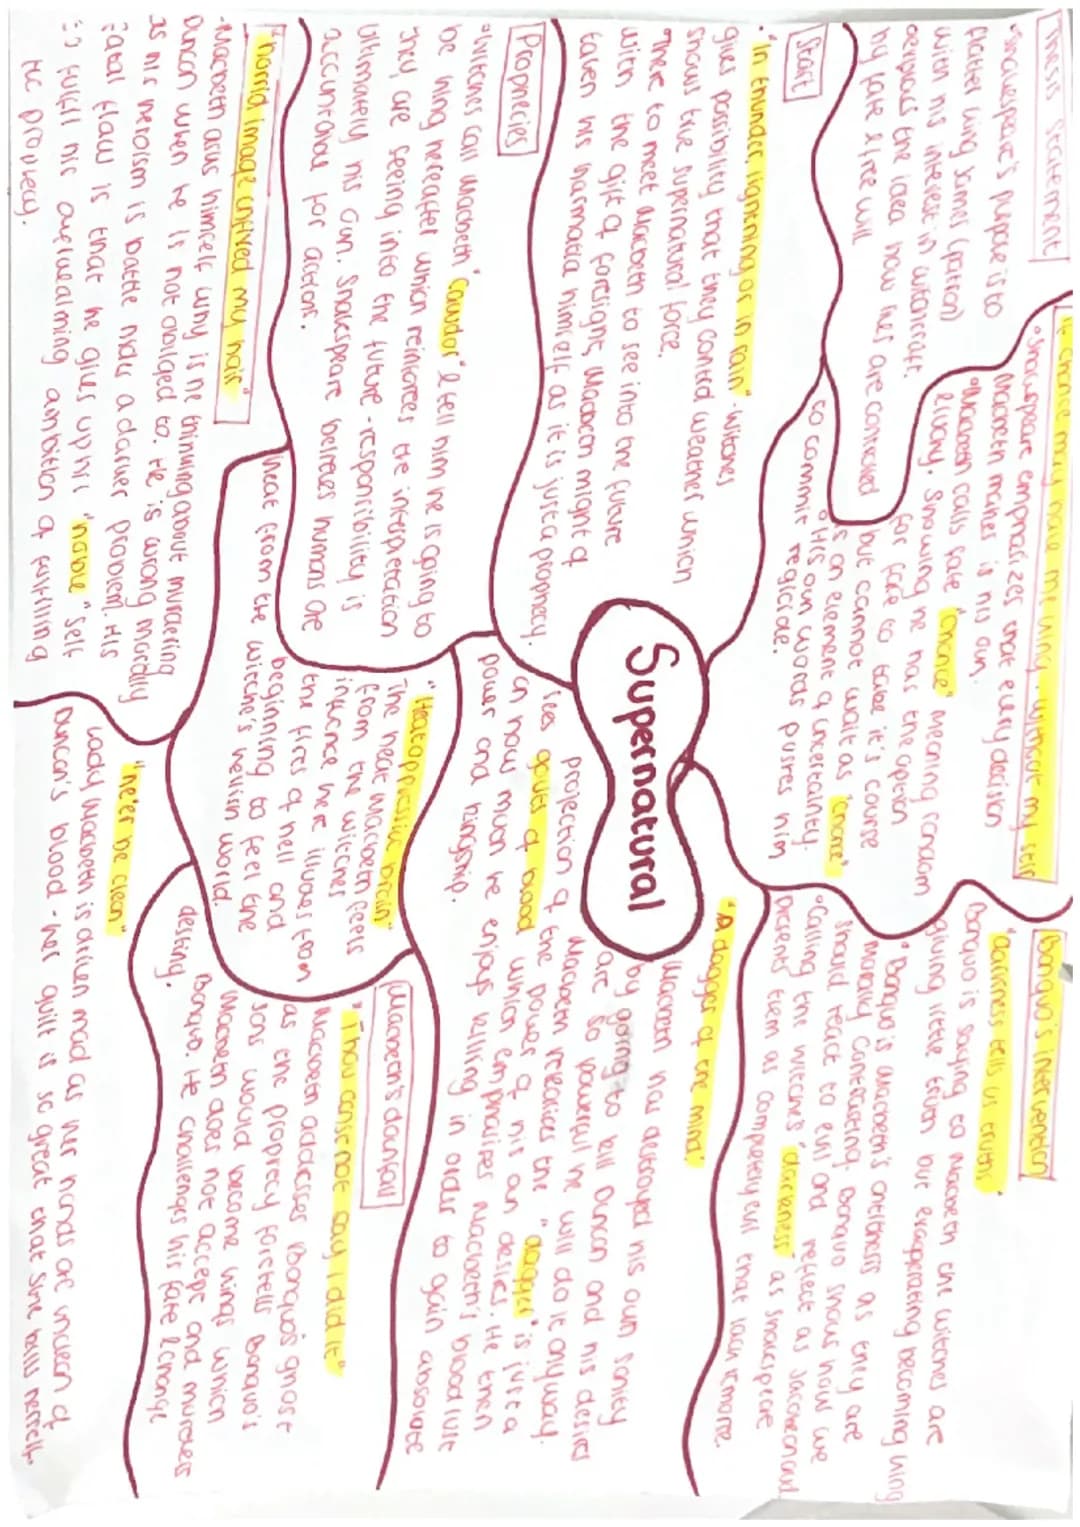 Thesis statement
"Shakespeare's purpose is to
flatter King James (patron)
with his interest in witchcraft.
explores the idea how lives are controlled
by fate & free will
Start
"In thunder, lightning or in rain" - witches
gives possibility that they control weather which
shows the supernatural force.
There to meet Macbeth to see into the future
with the gift of foresight, Macbeth might of
taken his harmatia himself as it is just a prophecy.
Prophecies
"Witches call Macbeth "Cawdor" & tell him he is going to
be king hereafter which reinforces the interpretation
they are seeing into the future - responsibility is
ultimately his own. Shakespeare believes humans are
accountable for actions.
"horrid image unfixed my hair"
-Macbeth asks himself why is he thinking about murdering
Duncan when he is not obliged to. He is wrong morally
as his heroism is battle hides a darker problem. His
fatal flaw is that he gives up his "noble" self
to fulfill his overwhelming ambition of fulfilling
the prophecy.
If chance may have me king, without my stir
"Shakespeare emphasizes that every decision
Macbeth makes is his own.
"Macbeth calls fate "chance" meaning random
& lucky. Showing he has the option
for fate to take it's course
but cannot wait as "chance"
is an element of uncertainity.
"His own words pushes him
to commit regicide.
Supernatural
Banquo's intervention
"darkness tells us truths"
Banquo is saying to Macbeth the witches are
giving little truth but exaggerating becoming king
"Banquo is Macbeth's antithesis as they are
morally contrasting. Banquo shows how we
should react to evil and reflect as Jacobean aud
"Calling the witches "darkness" as Shakespeare
presents them as completely evil that lack remorse.
"A dagger of the mind"
Macbeth has destroyed his own sanity
by going to kill Duncan and his desires
are so powerful he will do it anyway.
Macbeth realises the "dagger" is just a
projection of the power of his own desires. He then
sees gouts of blood which emphasises Macbeth's bloodlust
on how much he enjoys killing in order to gain absolute
power and kingship.
"Heat oppressive brain"
"The heat Macbeth feels
from the witches
influence here illudes from
the fires of hell and
beginning to feel the
heat from the witche's hellish world.
Macbeth's downfall
"Thou canst not say I did it"
Macbeth addresses Banquo's ghost
as the prophecy foretells Banquo's
sons would become kings which
Macbeth does not accept and murders
Banquo. He challenges his fate & change
destiny.
"ne'er be clean"
Lady Macbeth is driven mad as her hands are unclean of
Duncan's blood - her guilt is so great that she kills herself.